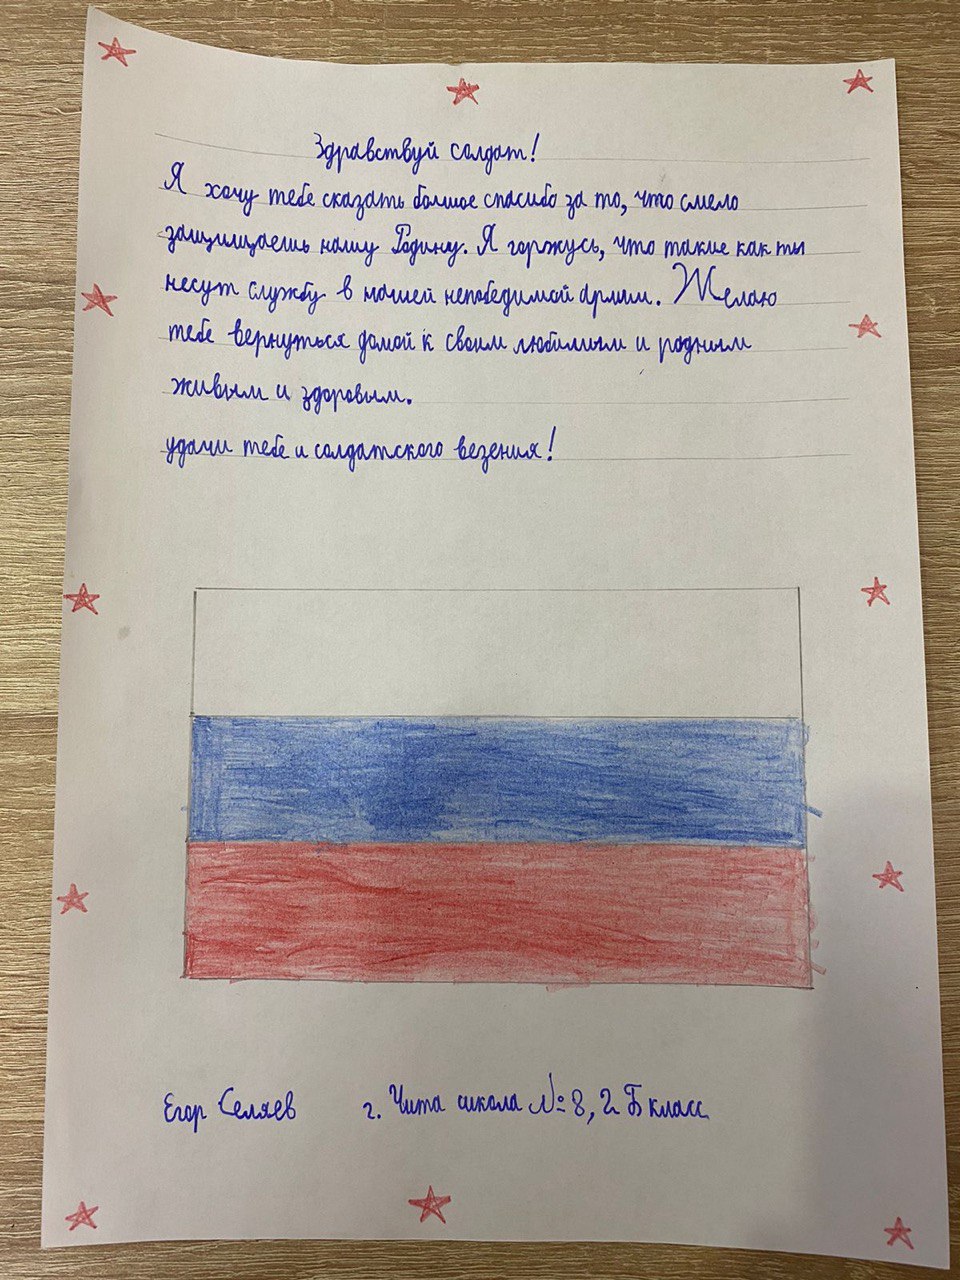 Здравствуй солдат!
Я хочу тебе сказать большое спасибо за то, что смело
защищаешь нашу Родину. Я горжусь, что такие как ты
несут службу в нашей непобедимой армии. Желаю
тебе вернуться домой к своим любимым и родным
живым и здоровым.
удачи тебе и солдатского везения!
Егор Селяев г. Чита школа № 8, 2 Б класс